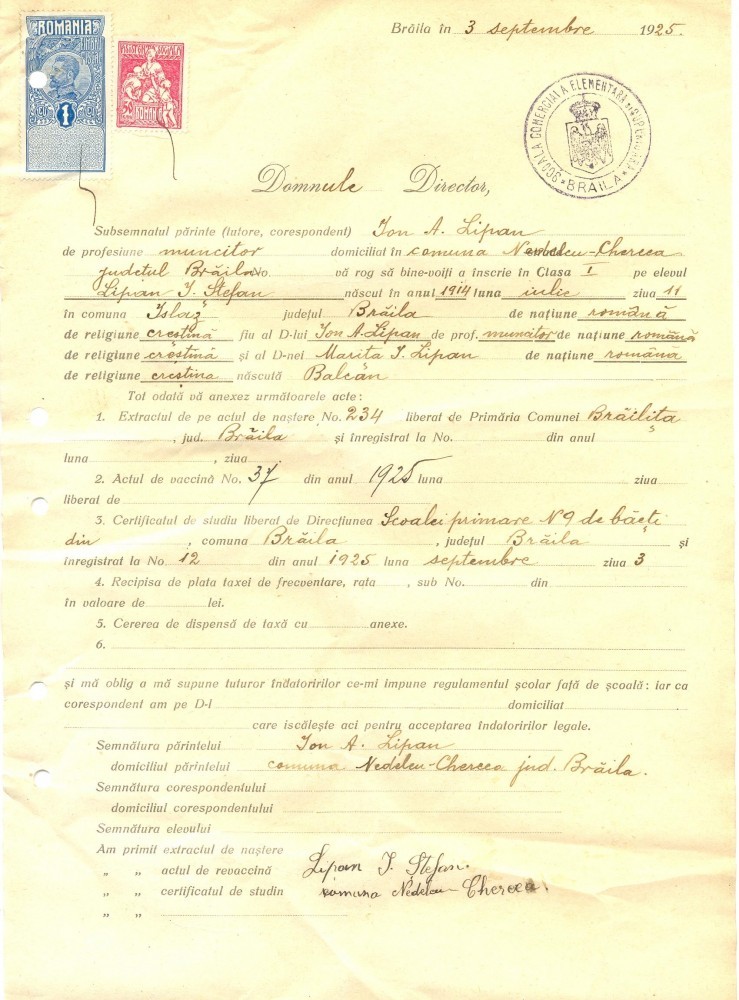 ROMANIA
1
50
ROMANIA
Brăila în 3 septembre 1925.
ȘCOALA COMERCIALĂ ELEMENTARĂ
* BRĂILA *
Domnule Director,
Subsemnatul părinte (tutore, corespondent) Ion A. Lipan
de profesiune muncitor domiciliat în comuna Nedelcu-Chercea
judetul Brăila No. vă rog să bine-voiți a înscrie în Clasa I pe elevul
Lipan I. Ștefan născut în anul 1914 luna iulie ziua 11
în comuna Islaz județul Brăila de națiune română
de religiune creștină fiu al D-lui Ion A. Lipan de prof. muncitor de națiune română
de religiune creștină și al D-nei Marita I. Lipan de națiune româna
de religiune creștina născută Balcân
Tot odată vă anexez următoarele acte:
1. Extractul de pe actul de naștere No. 234 liberat de Primăria Comunei Brăilița
, jud. Brăila și înregistrat la No. din anul
luna , ziua .
2. Actul de vaccină No. 37 din anul 1925 luna ziua
liberat de
3. Certificatul de studiu liberat de Direcțiunea Școalei primare N 9 de băeți
din , comuna Brăila , județul Brăila și
înregistrat la No. 12 din anul 1925 luna septembre ziua 3
4. Recipisa de plata taxei de frecventare, rata , sub No. din
în valoare de lei.
5. Cererea de dispensă de taxă cu anexe.
6.
și mă oblig a mă supune tuturor îndatoririlor ce-mi impune regulamentul școlar față de școală: iar ca
corespondent am pe D-l domiciliat
care iscălește aci pentru acceptarea îndatoririlor legale.
Semnătura părintelui Ion A. Lipan
domiciliul părintelui comuna Nedelcu-Chercea jud. Brăila.
Semnătura corespondentului
domiciliul corespondentului
Semnătura elevului
Am primit extractul de naștere
„ „ actul de revaccină Lipan I. Ștefan.
„ „ certificatul de studin comuna Nedelcu-Chercea.
„ „